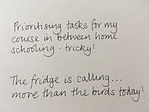 Prioritising tasks for my
course in between home
schooling - tricky!
The fridge is calling...
more than the birds today!